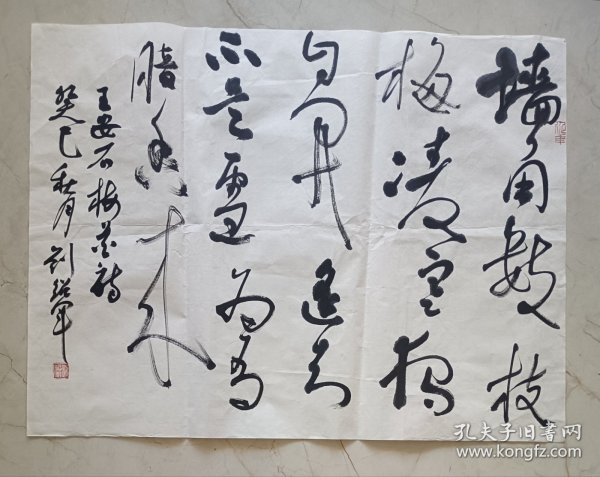 墙角数枝
梅凌寒独
自开遥知
不是雪为有
暗香来
王安石梅花诗
癸巳秋月 刘军
孔夫子旧书网
www.kongfz.com